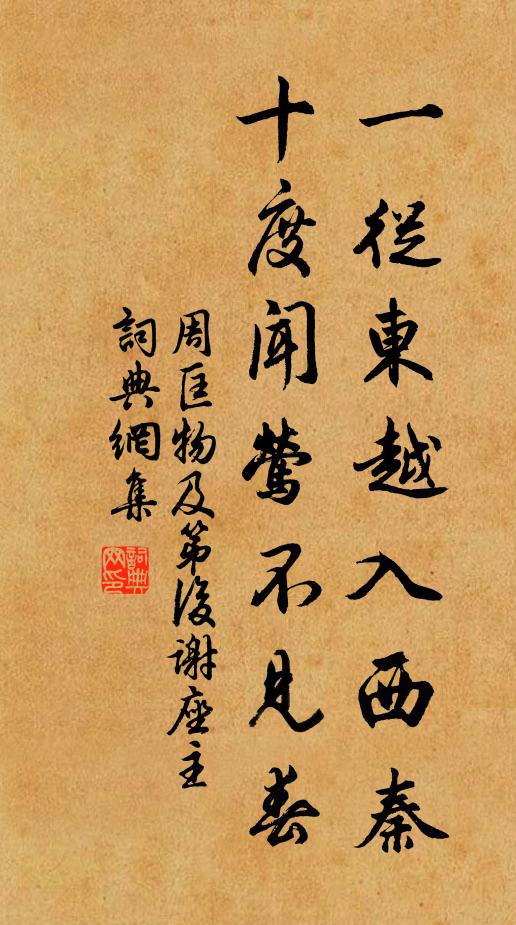 一從東越入西秦
十度聞鶯不見春
周匡物及第後謝座主
詞典網集
詞典網印